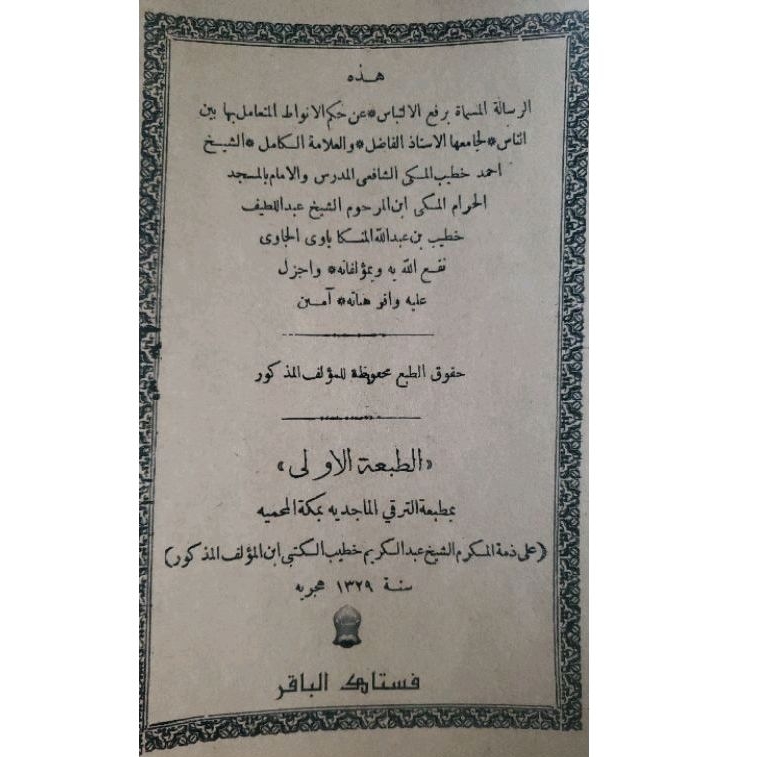 هذه
الرسالة المسماة برفع الالتباس * عن حكم الانواط المتعامل بها بين
الناس * لجامعها الاستاذ الفاضل * والعلامة الكامل * الشيخ
احمد خطيب المكى الشافعى المدرس والامام بالمسجد
الحرام المكى ابن المرحوم الشيخ عبد اللطيف
خطيب بن عبد الله المنسكاباوى الجاوى
نفع الله به وبمؤلفاته * واجزل
عليه وافر هباته * آمين
حقوق الطبع محفوظة للمؤلف المذكور
«الطبعة الاولى»
بمطبعة الترقي الماجديه بمكة المحميه
(على ذمة المكرم الشيخ عبد الكريم خطيب الكتبى ابن المؤلف المذكور)
سنة ١٣٢٩ هجريه
فستاك الباقر